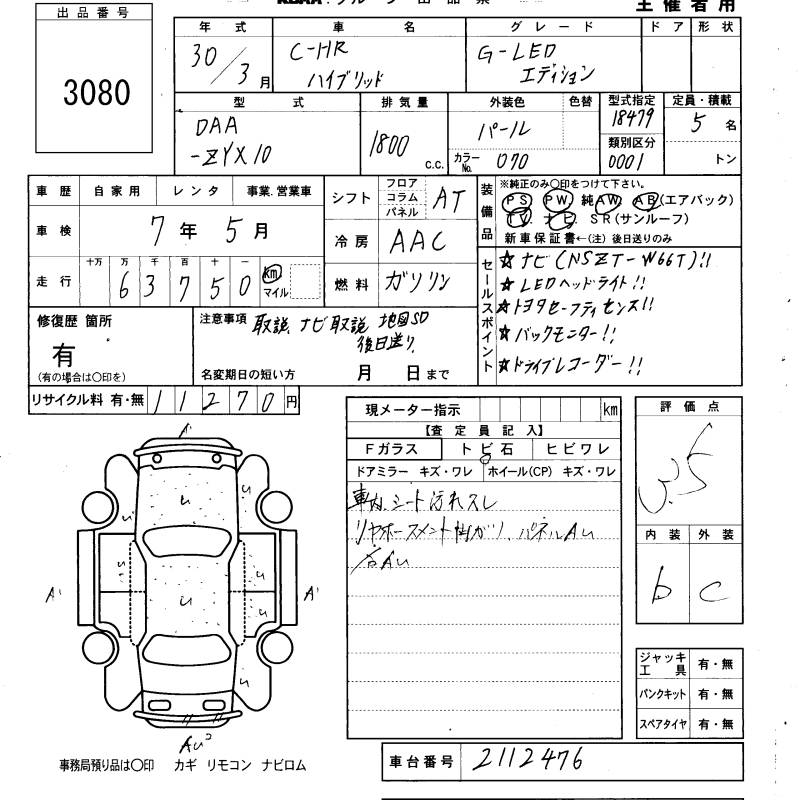 出品番号
3080
主催者用
年式 車名 グレード ドア 形状
30/3月 C-HR ハイブリッド G-LED エディション
型式 排気量 外装色 色替 型式指定 定員・積載
DAA-ZYX10 1800 c.c. パール 18479 5名
カラーNo. 070 類別区分 0001 トン
車歴 自家用 レンタ 事業.営業車
車検 7年5月
走行 十万 万 千 百 十 一
63750 km マイル
シフト フロア コラム パネル AT
冷房 AAC
燃料 ガソリン
装備品
※純正のみ〇印をつけて下さい。
PS PW 純AW AB(エアバック)
TV ナビ SR(サンルーフ)
新車保証書←(注) 後日送りのみ
セールスポイント
☆ナビ(NSZT-W66T)!!
☆LEDヘッドライト!!
☆トヨタセーフティセンス!!
☆バックモニター!!
☆ドライブレコーダー!!
修復歴 箇所
有
(有の場合は〇印を)
注意事項 取説 ナビ取説 地図SD
後日送り
名変期日の短い方 月 日まで
リサイクル料 有・無 11270円
現メーター指示 km
【査定員記入】
Fガラス トビ石 ヒビワレ
ドアミラー キズ・ワレ ホイール(CP) キズ・ワレ
車内.シート汚れスレ
パネルAu
右Au
評価点
3.5
内装 外装
b c
ジャッキ工具 有・無
パンクキット 有・無
スペアタイヤ 有・無
A'
A'
A'
Au²
事務局預り品は〇印 カギ リモコン ナビロム
車台番号 2112476